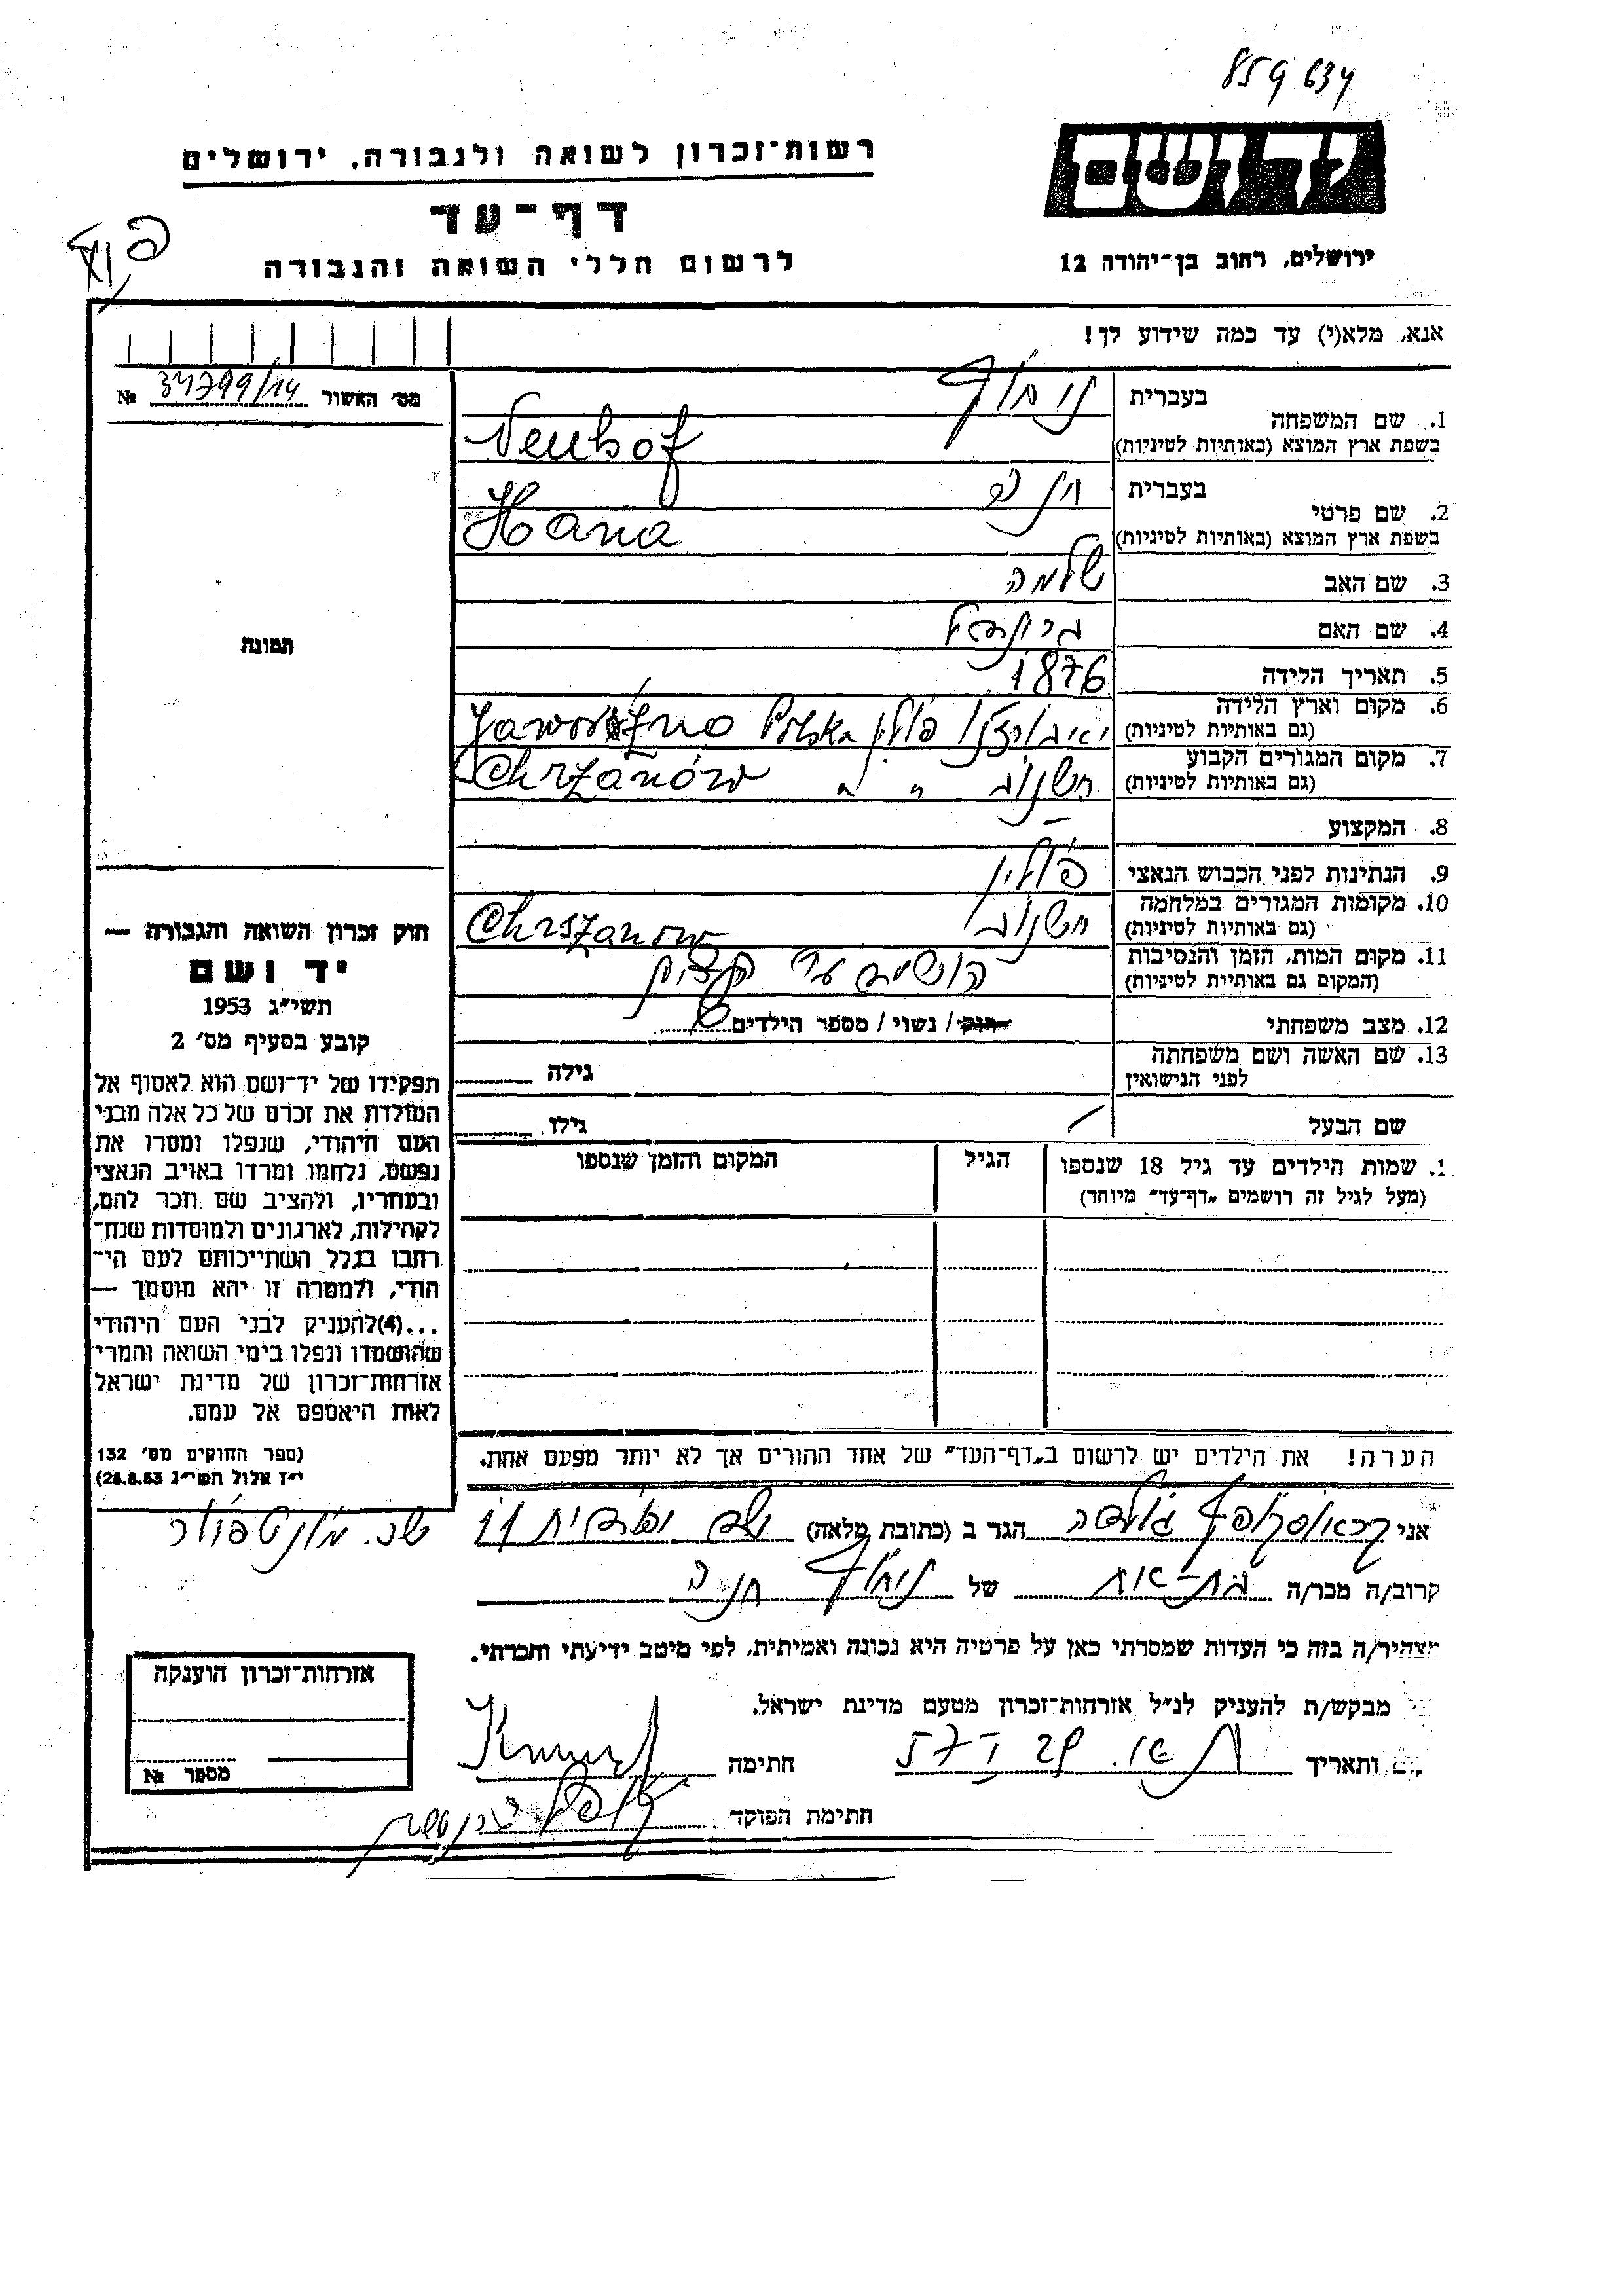 859634
יד ושם
ירושלים, רחוב בן-יהודה 12
רשות-זכרון לשואה ולגבורה, ירושלים
דף-עד
לרשום חללי השואה והגבורה
אנא, מלא(י) עד כמה שידוע לך!
מס׳ האשור 34799/14 №
תמונה
1. שם המשפחה בעברית נוihוף
בשפת ארץ המוצא (באותיות לטיניות) Neuhof
2. שם פרטי בעברית חנה
בשפת ארץ המוצא (באותיות לטיניות) Hana
3. שם האב שלמה
4. שם האם
5. תאריך הלידה 1876
6. מקום וארץ הלידה
(גם באותיות לטיניות) פולין Jaworzno Polska
7. מקום המגורים הקבוע
(גם באותיות לטיניות) חשנוב " " Chrzanów
8. המקצוע –
9. הנתינות לפני הכבוש הנאצי פולין
10. מקומות המגורים במלחמה
(גם באותיות לטיניות) חשנוב Chrszanow
11. מקום המות, הזמן והנסיבות
(המקום גם באותיית לטיניות) הושמדה
12. מצב משפחתי רווק / נשוי / מספר הילדים
13. שם האשה ושם משפחתה
לפני הנישואין גילה
שם הבעל גילו
1. שמות הילדים עד גיל 18 שנספו הגיל המקום והזמן שנספו
(מעל לגיל זה רושמים „דף-עד" מיוחד)
הערה! את הילדים יש לרשום ב„דף-העד" של אחד ההורים אך לא יותר מפעם אחת.
חוק זכרון השואה והגבורה —
יד ושם
תשי״ג 1953
קובע בסעיף מס׳ 2
תפקידו של יד-ושם הוא לאסוף אל
המולדת את זכרם של כל אלה מבני
העם היהודי, שנפלו ומסרו את
נפשם, נלחמו ומרדו באויב הנאצי
ובעוזריו, ולהציב שם וזכר להם,
לקהילות, לארגונים ולמוסדות שנח-
רבו בגלל השתייכותם לעם הי-
הודי, ולמטרה זו יהא מוסמך —
...(4)להעניק לבני העם היהודי
שהושמדו ונפלו בימי השואה והמרי
אזרחות-זכרון של מדינת ישראל
לאות היאספם אל עמם.
(ספר החוקים מס׳ 132
י״ז אלול תשי״ג 28.8.53)
אני הגר ב (כתובת מלאה) שכ.
קרוב/ה מכר/ה בת-אח של נויהוף חנה
מצהיר/ה בזה כי העדות שמסרתי כאן על פרטיה היא נכונה ואמיתית, לפי מיטב ידיעתי והכרתי.
מבקש/ת להעניק לנ״ל אזרחות-זכרון מטעם מדינת ישראל.
ותאריך חתימה
חתימת הפוקד
אזרחות-זכרון הוענקה
מספר №